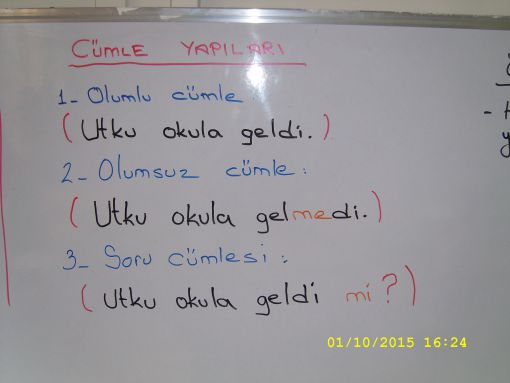 CÜMLE YAPILARI
1- Olumlu cümle :
( Utku okula geldi. )
2- Olumsuz cümle :
( Utku okula gelmedi. )
3- Soru cümlesi :
( Utku okula geldi mi ? )
01/10/2015 16:24